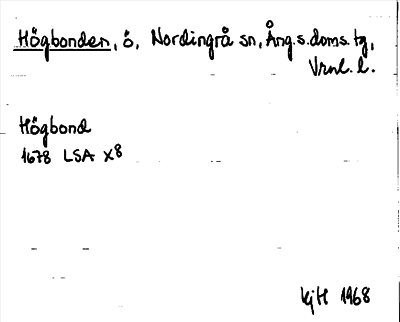 Högbonden, ö, Nordingrå sn, Ång.s.doms.tg,
Vrnl. l.
Högbond
1678 LSA X8
kjH 1968